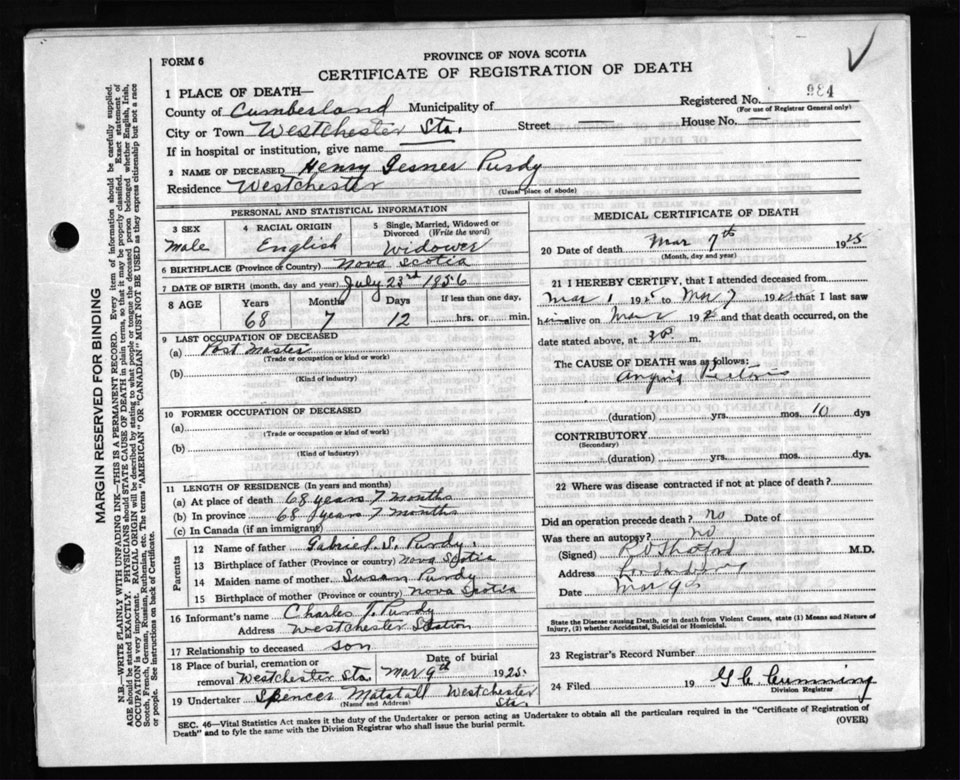 FORM 6
PROVINCE OF NOVA SCOTIA
CERTIFICATE OF REGISTRATION OF DEATH
984
1 PLACE OF DEATH—
County of Cumberland Municipality of
Registered No.
(For use of Registrar General only)
City or Town Westchester Sta. Street — House No. —
If in hospital or institution, give name
2 NAME OF DECEASED Henry Gesner Purdy
Residence Westchester
(Usual place of abode)
PERSONAL AND STATISTICAL INFORMATION
3 SEX
Male
4 RACIAL ORIGIN
English
5 Single, Married, Widowed or Divorced (Write the word)
Widower
6 BIRTHPLACE (Province or Country) Nova Scotia
7 DATE OF BIRTH (month, day and year) July 23rd 1856
8 AGE Years Months Days If less than one day,
68 7 12 hrs. or min.
9 LAST OCCUPATION OF DECEASED
(a) Post Master
(Trade or occupation or kind or work)
(b)
(Kind of industry)
10 FORMER OCCUPATION OF DECEASED
(a)
(Trade or occupation or kind of work)
(b)
(Kind of industry)
11 LENGTH OF RESIDENCE (In years and months)
(a) At place of death 68 years 7 months
(b) In province 68 years 7 months
(c) In Canada (if an immigrant)
Parents
12 Name of father Gabriel. S. Purdy.
13 Birthplace of father (Province or country) Nova Scotia
14 Maiden name of mother Susan Purdy
15 Birthplace of mother (Province or country) Nova Scotia
16 Informant's name Charles T. Purdy
Address Westchester Station
17 Relationship to deceased son
18 Place of burial, cremation or removal Westchester Sta.
Date of burial
Mar 9th 1925.
19 Undertaker Spencer Matatall Westchester Sta.
(Name and Address)
MEDICAL CERTIFICATE OF DEATH
20 Date of death Mar 7th 1925
(Month, day and year)
21 I HEREBY CERTIFY, that I attended deceased from
Mar 1 1925 to Mar 7 1925 that I last saw
him alive on Mar 192 and that death occurred, on the
date stated above, at m.
The CAUSE OF DEATH was as follows:
Angina Pectoris
(duration) yrs. mos. 10 dys
CONTRIBUTORY
(Secondary)
(duration) yrs. mos. dys.
22 Where was disease contracted if not at place of death?
Did an operation precede death? no Date of
Was there an autopsy? no
(Signed) M.D.
Address
Date Mar 9
State the Disease causing Death, or in death from Violent Causes, state (1) Means and Nature of Injury, (2) whether Accidental, Suicidal or Homicidal.
23 Registrar's Record Number
24 Filed 19 G C Cumming
Division Registrar
SEC. 46—Vital Statistics Act makes it the duty of the Undertaker or person acting as Undertaker to obtain all the particulars required in the "Certificate of Registration of
Death" and to fyle the same with the Division Registrar who shall issue the burial permit.
(OVER)
MARGIN RESERVED FOR BINDING
N.B.—WRITE PLAINLY WITH UNFADING INK—THIS IS A PERMANENT RECORD. Every item of information should be carefully supplied.
AGE should be stated EXACTLY. PHYSICIANS should STATE CAUSE OF DEATH in plain terms, so that it may be properly classified. Exact statement of
OCCUPATION is very important. RACIAL ORIGIN will be described by stating to what people or tongue the deceased person belonged whether English, Irish,
Scotch, French, German, Russian, Ruthenian, etc. The terms "AMERICAN" or "CANADIAN" MUST NOT BE USED as they express citizenship but not a race
or people. See instructions on back of Certificate.